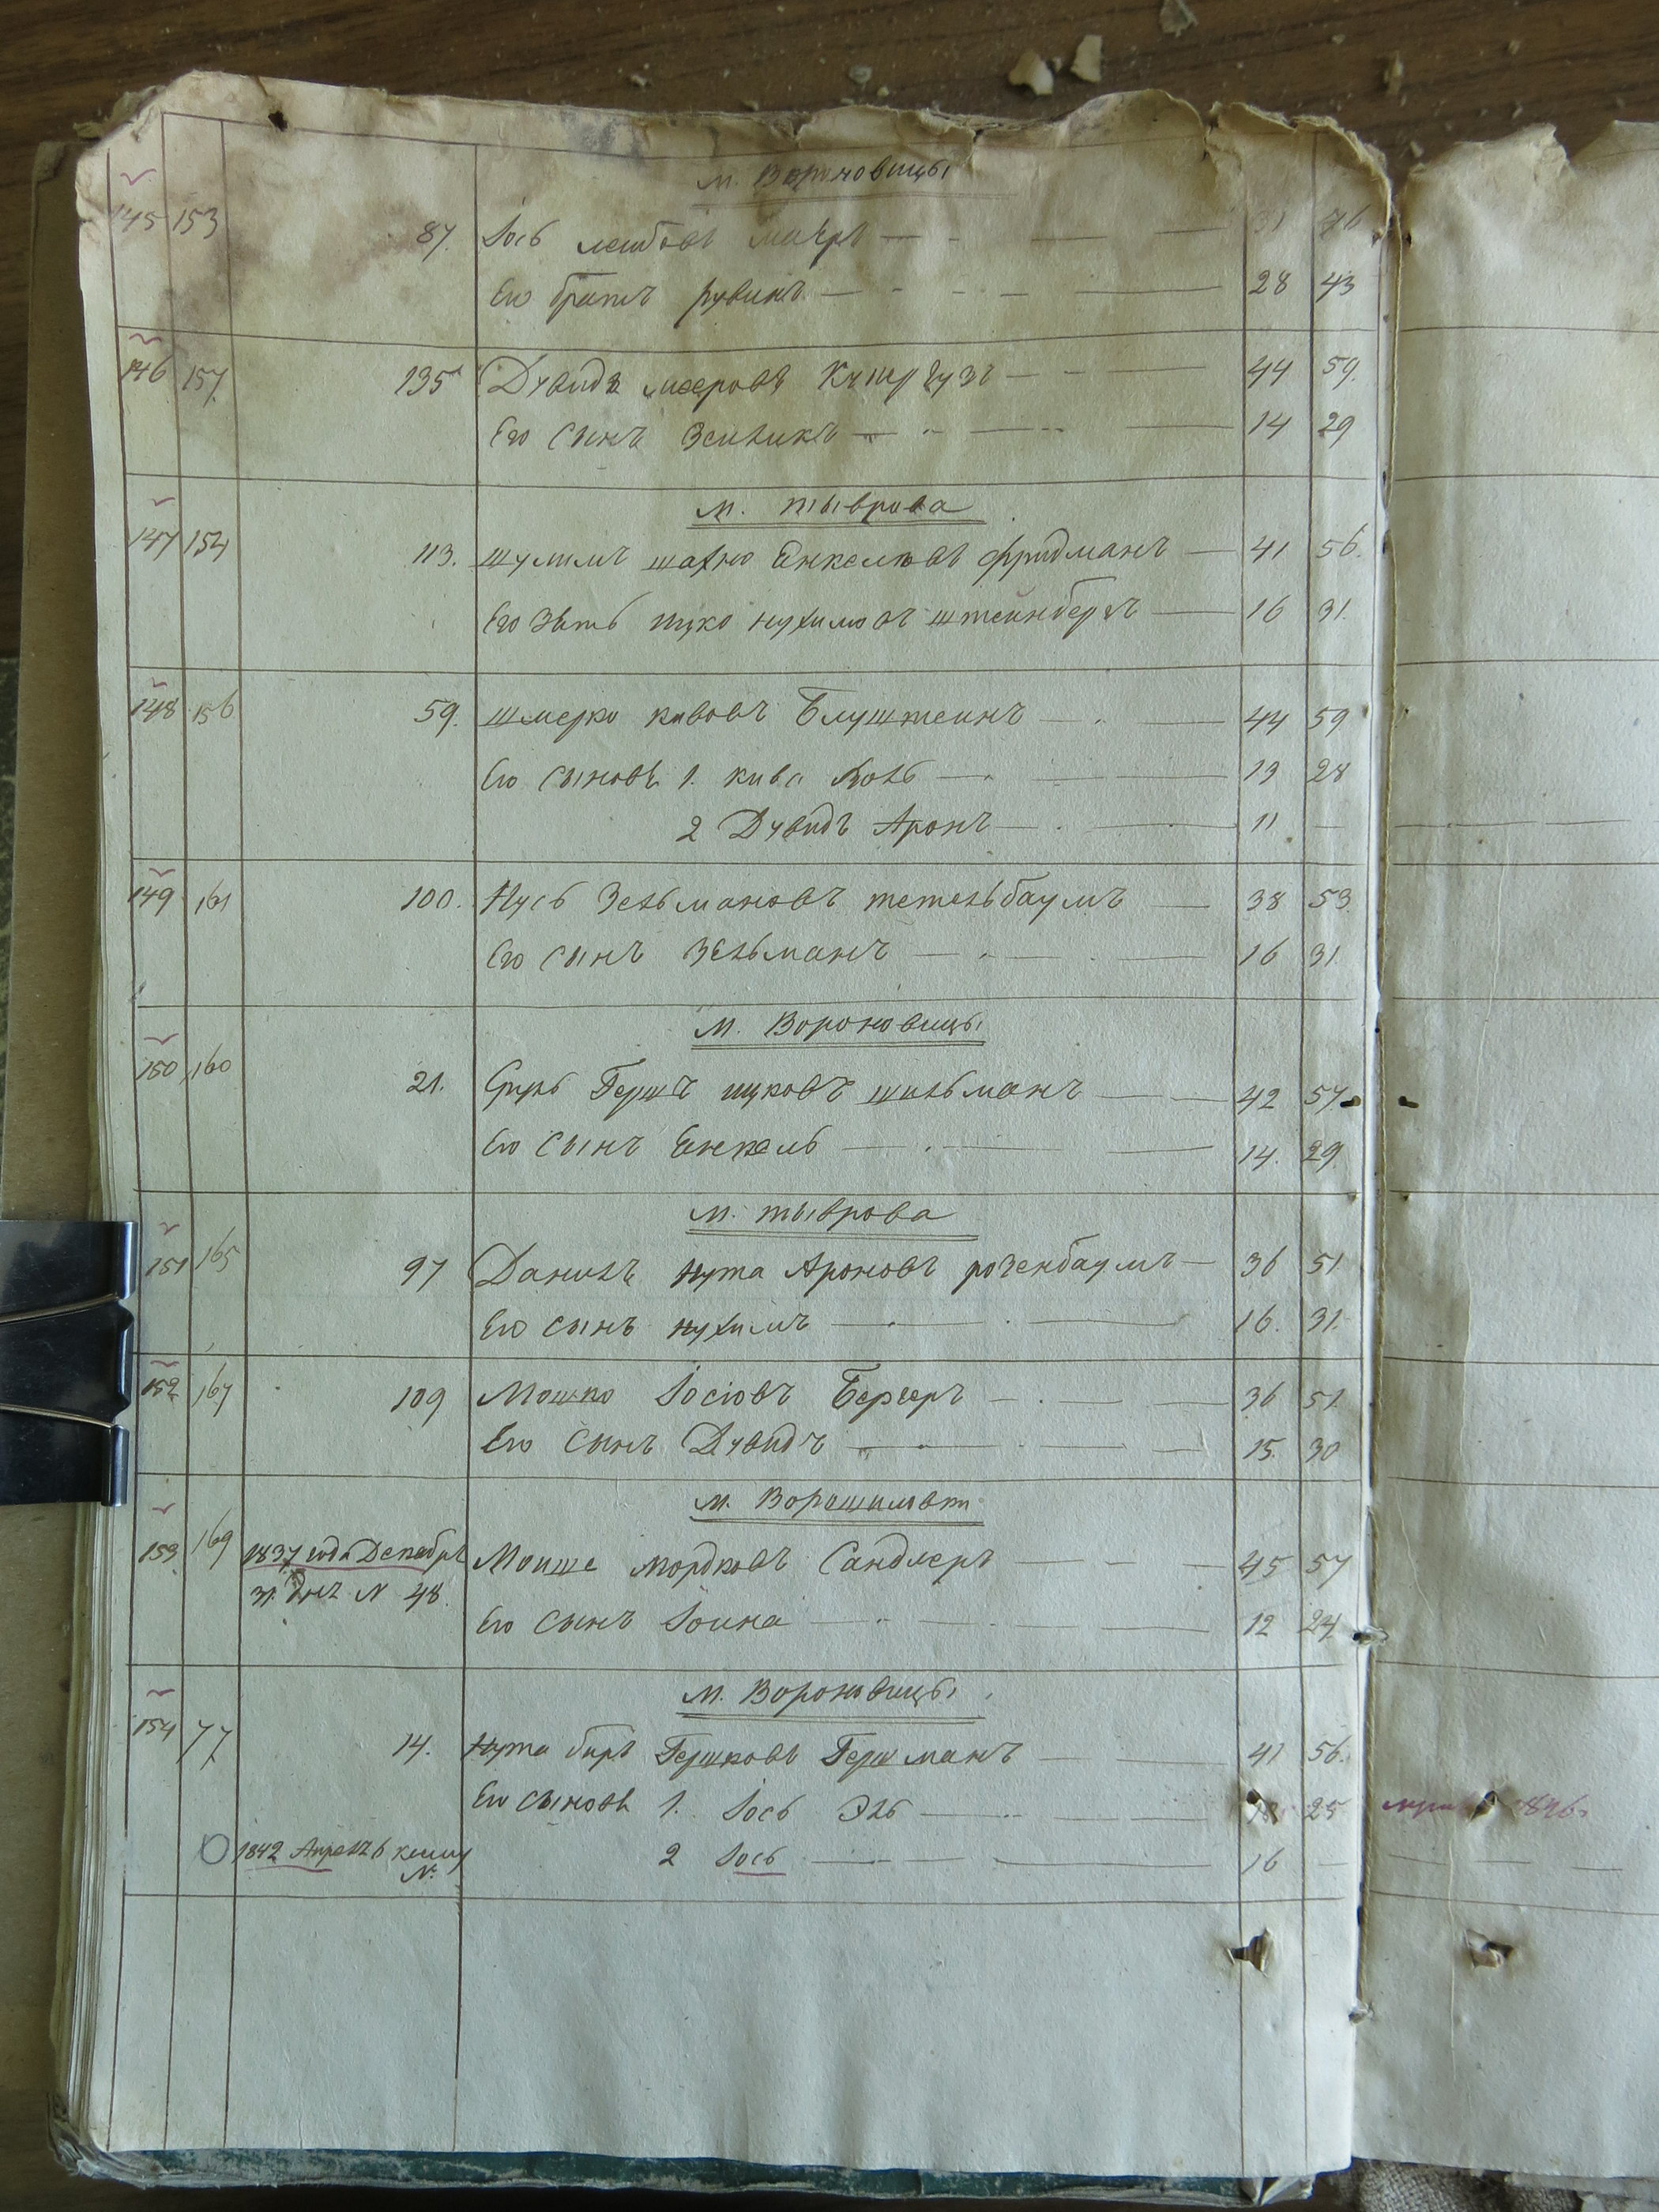 м. Вороновицы
145 153 87. Іось лейбовъ маеръ 31 46
Его братъ рувинъ 28 43
146 157 135 Дувидъ мееровъ 44 59.
Его сынъ Зейликъ 14 29
м. тыврова
147 154 113. шулимъ шахно Енкелювъ фридманъ 41 56.
Его зять ицко нухимовъ штейнбергъ 16 31.
148 156 59. шмерко кивовъ Блуштейнъ 44 59
Его сыновъ 1. кива 13 28
2 Дувидъ Аронъ 11 —
149 161 100. Нусь Зельмановъ тетельбаумъ 38 53.
Его сынъ Зельманъ 16 31.
м. Вороновицы
150 160 21. Сруль Гершъ ицковъ шильманъ 42 57
Его сынъ Енкель 14. 29.
м. тыврова
151 165 97 Данилъ нута Ароновъ розенбаумъ 36 51
Его сынъ нухимъ 16. 31.
152 167 109 Мошко Іосіовъ Бергеръ 36 51.
Его сынъ Дувидъ 15. 30
м. Ворошиловки
153 169 1837 года Декабр Моише мордковъ Сандлеръ 45 57
31. дня N 48. Его сынъ Іоина 12 24
м. Вороновицы
154 77 14. Нута беръ Гершковъ Гершманъ 41 56.
Его сыновъ 1. Іось Эль 18 25
1842 Апрель 6 2 Іось 16 —
N.